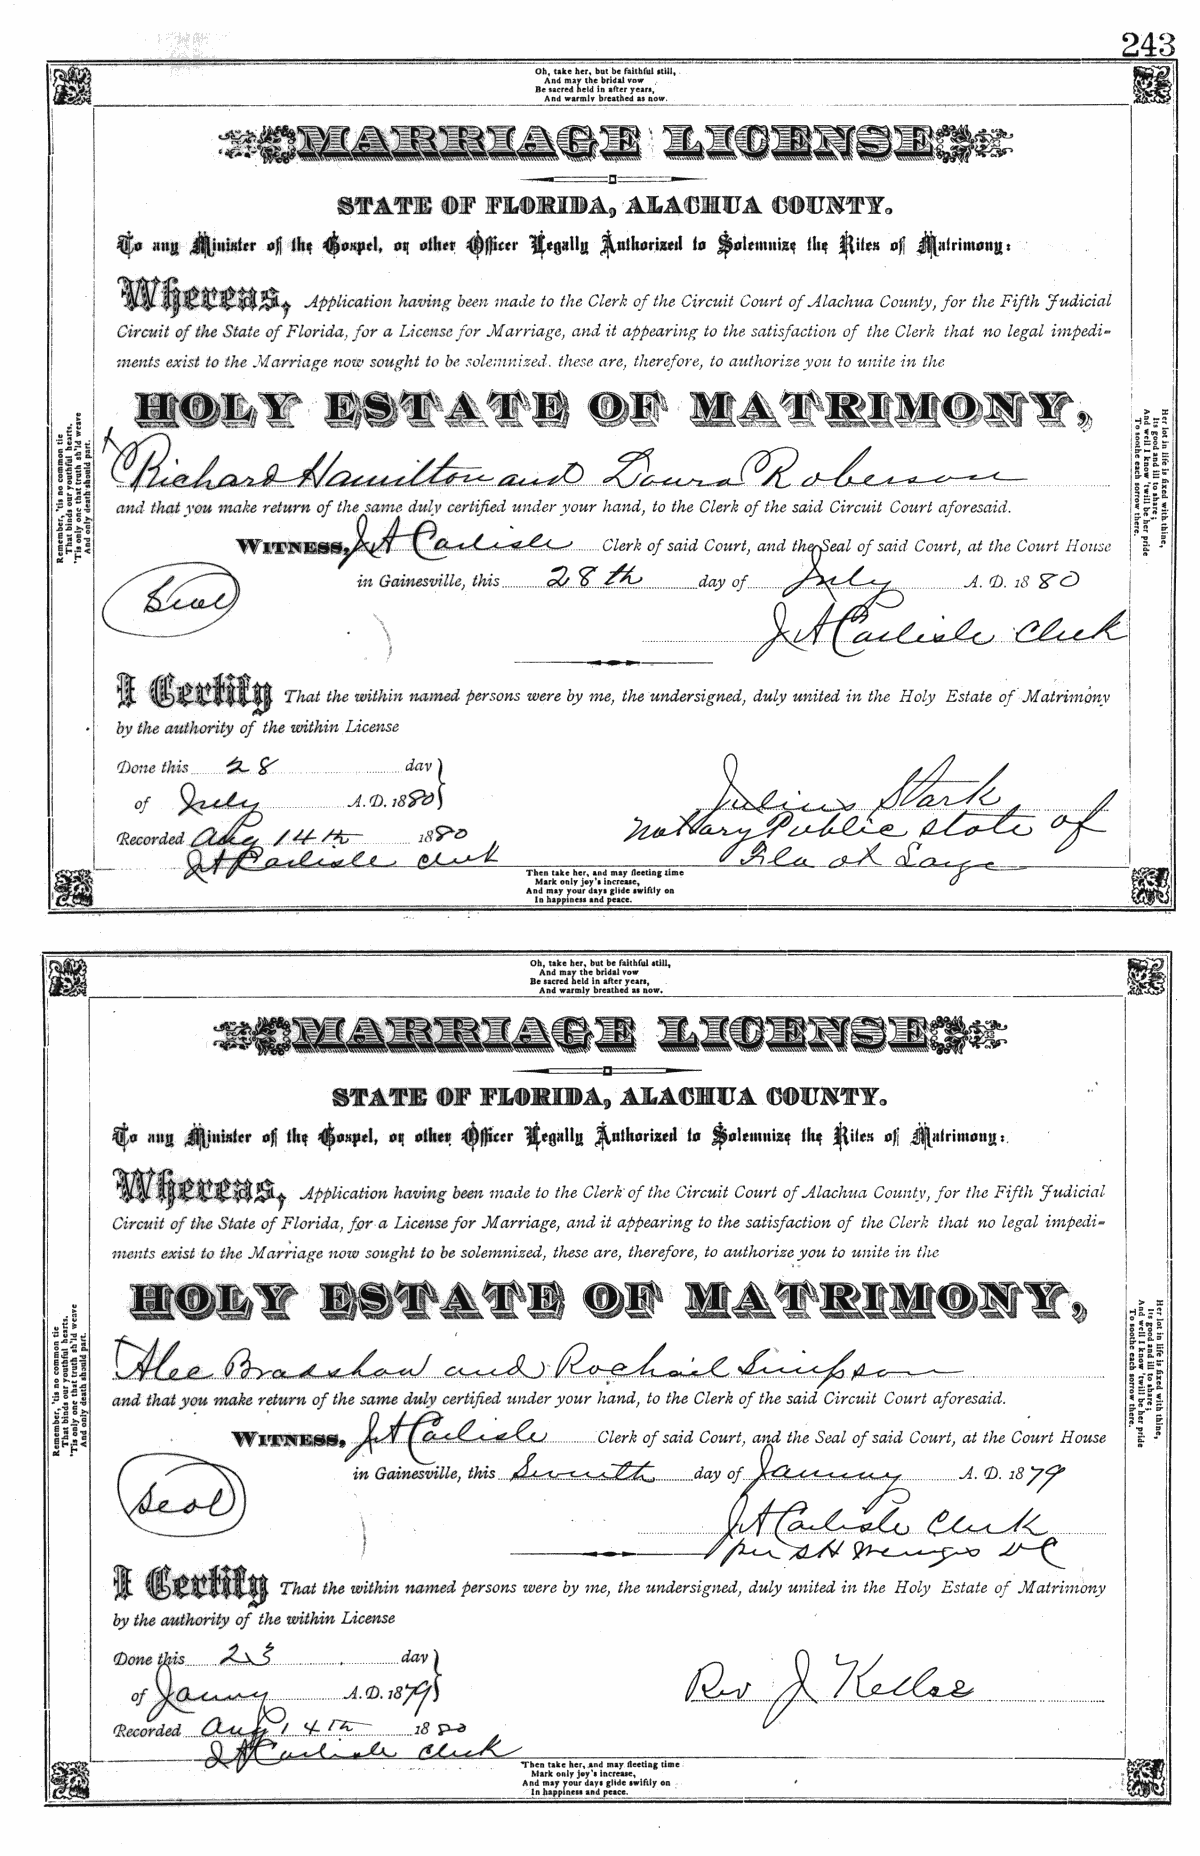 243
Oh, take her, but be faithful still,
And may the bridal vow
Be sacred held in after years,
And warmly breathed as now.
MARRIAGE LICENSE
STATE OF FLORIDA, ALACHUA COUNTY.
To any Minister of the Gospel, or other Officer Legally Authorized to Solemnize the Rites of Matrimony:
Whereas, Application having been made to the Clerk of the Circuit Court of Alachua County, for the Fifth Judicial
Circuit of the State of Florida, for a License for Marriage, and it appearing to the satisfaction of the Clerk that no legal impedi-
ments exist to the Marriage now sought to be solemnized. these are, therefore, to authorize you to unite in the
HOLY ESTATE OF MATRIMONY,
Richard Hamilton and Roberson
and that you make return of the same duly certified under your hand, to the Clerk of the said Circuit Court aforesaid.
WITNESS, J A Carlisle Clerk of said Court, and the Seal of said Court, at the Court House
in Gainesville, this 28th day of July A. D. 1880
Seal
J A Carlisle Clerk
I Certify That the within named persons were by me, the undersigned, duly united in the Holy Estate of Matrimony
by the authority of the within License
Done this 28 day
of July A. D. 1880
Julius Stark
Recorded Aug 14th 1880
Notary Public State of
J A Carlisle Clerk
Fla at Large
Remember, 'tis no common tie
That binds our youthful hearts,
'Tis only one that truth sh'ld weave
And only death should part.
Her lot in life is fixed with thine,
Its good and ill to share;
And well I know 'twill be her pride
To soothe each sorrow there.
Then take her, and may fleeting time
Mark only joy's increase,
And may your days glide swiftly on
In happiness and peace.
Oh, take her, but be faithful still,
And may the bridal vow
Be sacred held in after years,
And warmly breathed as now.
MARRIAGE LICENSE
STATE OF FLORIDA, ALACHUA COUNTY.
To any Minister of the Gospel, or other Officer Legally Authorized to Solemnize the Rites of Matrimony:
Whereas, Application having been made to the Clerk of the Circuit Court of Alachua County, for the Fifth Judicial
Circuit of the State of Florida, for a License for Marriage, and it appearing to the satisfaction of the Clerk that no legal impedi-
ments exist to the Marriage now sought to be solemnized, these are, therefore, to authorize you to unite in the
HOLY ESTATE OF MATRIMONY,
Alec Bradshaw and Rochail Simpson
and that you make return of the same duly certified under your hand, to the Clerk of the said Circuit Court aforesaid.
WITNESS, J A Carlisle Clerk of said Court, and the Seal of said Court, at the Court House
in Gainesville, this Seventh day of January A. D. 1879
Seal
J A Carlisle Clerk
per S H DC
I Certify That the within named persons were by me, the undersigned, duly united in the Holy Estate of Matrimony
by the authority of the within License
Done this 23 day
of Janny A. D. 1879
Rev J
Recorded Aug 14th 1880
J A Carlisle Clerk
Remember, 'tis no common tie
That binds our youthful hearts,
'Tis only one that truth sh'ld weave
And only death should part.
Her lot in life is fixed with thine,
Its good and ill to share;
And well I know 'twill be her pride
To soothe each sorrow there.
Then take her, and may fleeting time
Mark only joy's increase,
And may your days glide swiftly on
In happiness and peace.